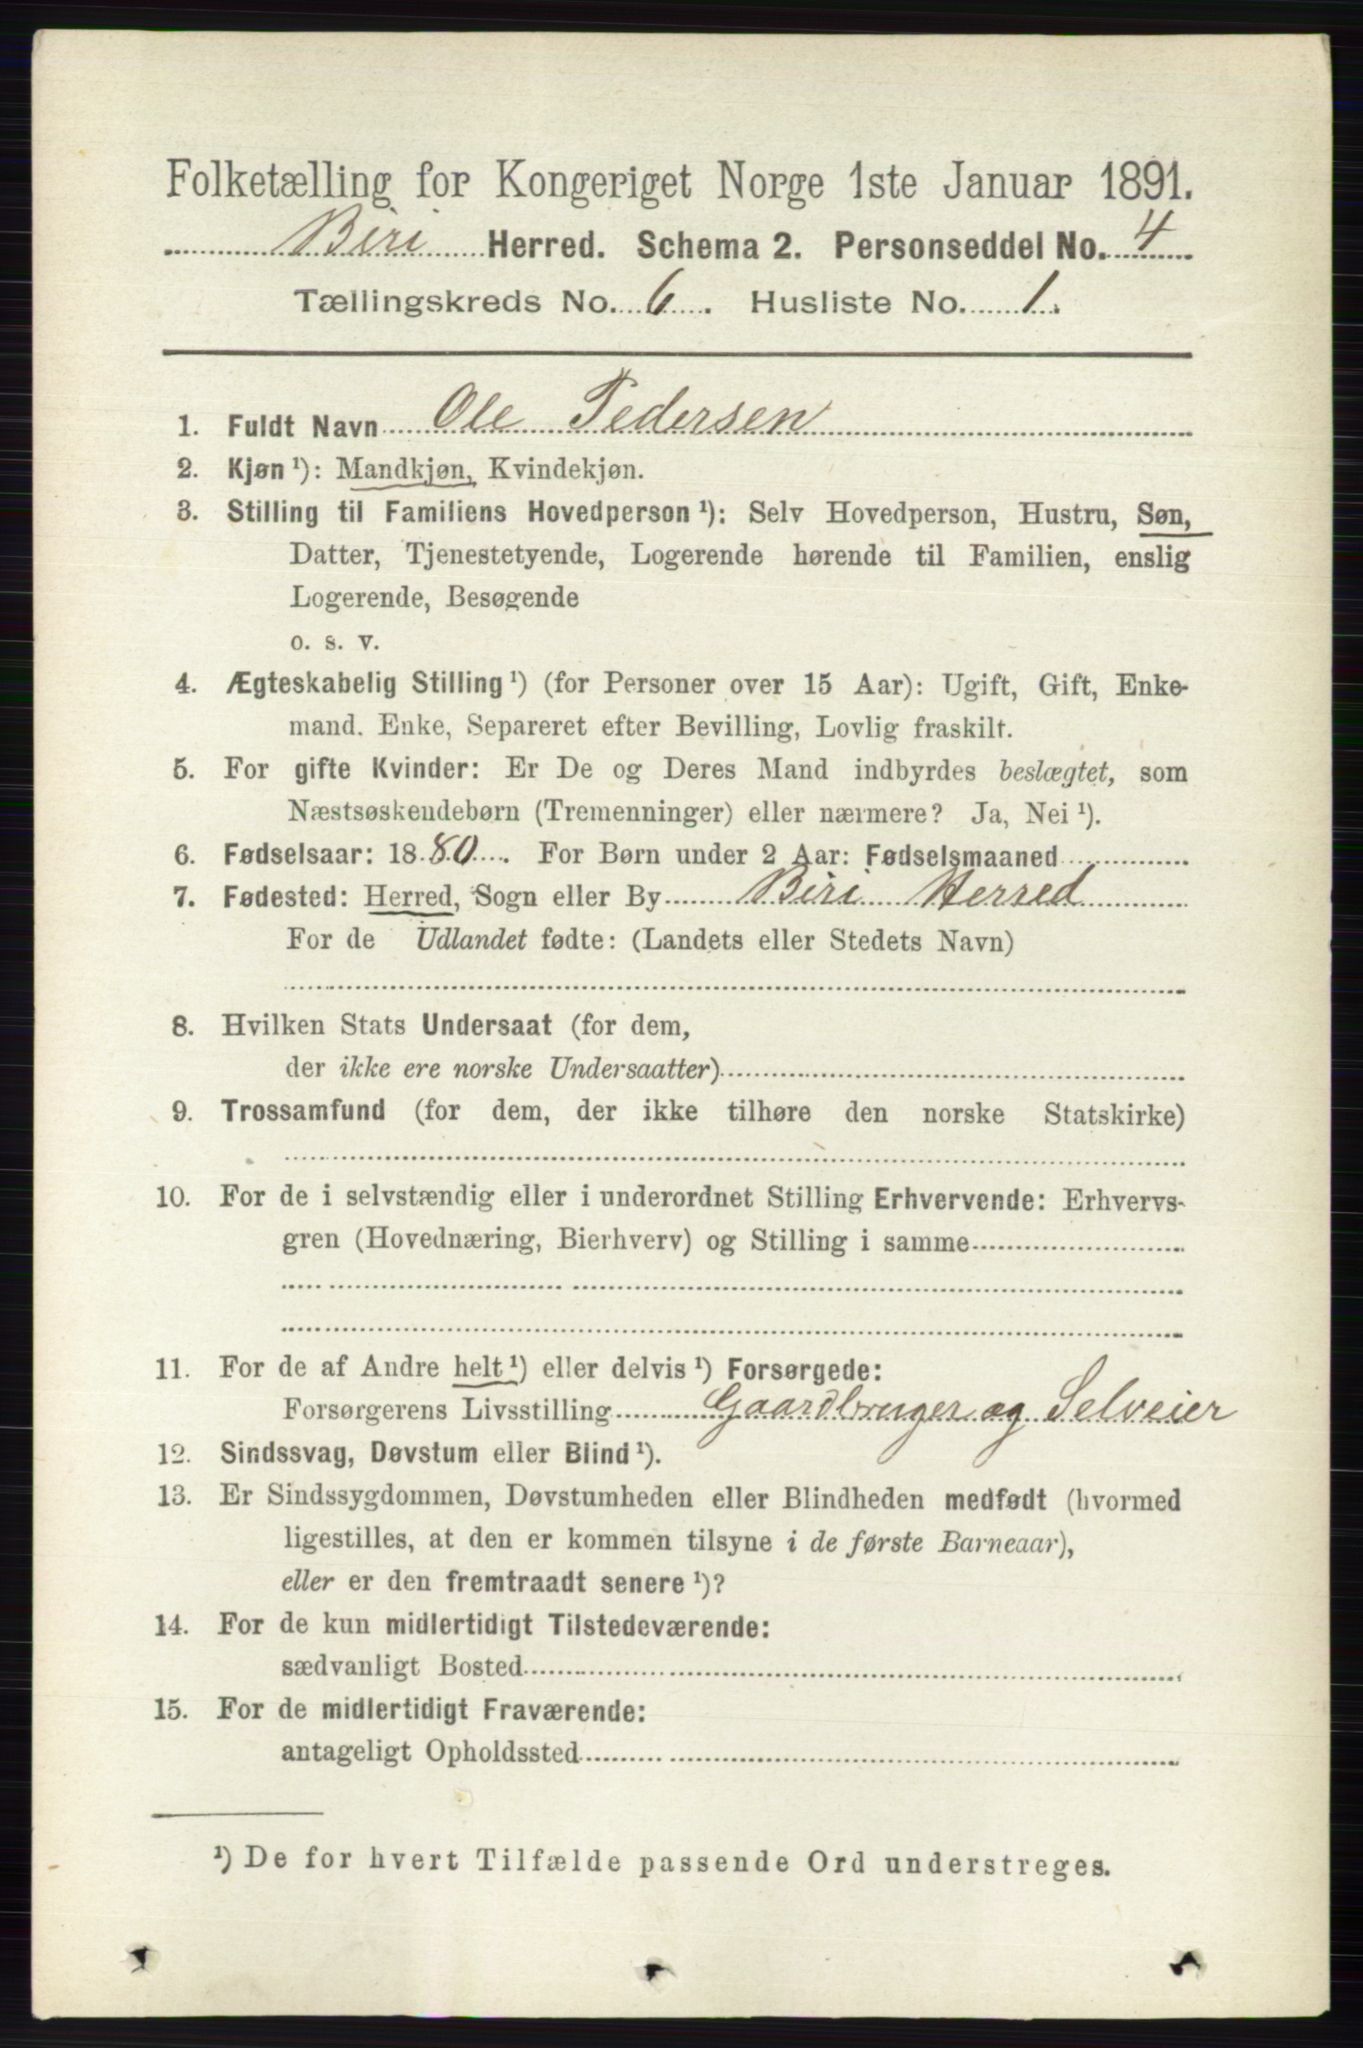 Folketælling for Kongeriget Norge 1ste Januar 1891.
Biri Herred. Schema 2. Personseddel No. 4
Tællingskreds No. 6. Husliste No. 1.
1. Fuldt Navn Ole Pedersen
2. Kjøn ¹): Mandkjøn, Kvindekjøn.
3. Stilling til Familiens Hovedperson ¹): Selv Hovedperson, Hustru, Søn,
Datter, Tjenestetyende, Logerende hørende til Familien, enslig
Logerende, Besøgende
o. s. v.
4. Ægteskabelig Stilling ¹) (for Personer over 15 Aar): Ugift, Gift, Enke-
mand. Enke, Separeret efter Bevilling, Lovlig fraskilt.
5. For gifte Kvinder: Er De og Deres Mand indbyrdes beslægtet, som
Næstsøskendebørn (Tremenninger) eller nærmere? Ja, Nei ¹).
6. Fødselsaar: 1880. For Børn under 2 Aar: Fødselsmaaned
7. Fødested: Herred, Sogn eller By Biri Herred
For de Udlandet fødte: (Landets eller Stedets Navn)
8. Hvilken Stats Undersaat (for dem,
der ikke ere norske Undersaatter)
9. Trossamfund (for dem, der ikke tilhøre den norske Statskirke)
10. For de i selvstændig eller i underordnet Stilling Erhvervende: Erhvervs-
gren (Hovednæring, Bierhverv) og Stilling i samme
11. For de af Andre helt ¹) eller delvis ¹) Forsørgede:
Forsørgerens Livsstilling Gaardbruger og Selveier
12. Sindssvag, Døvstum eller Blind ¹).
13. Er Sindssygdommen, Døvstumheden eller Blindheden medfødt (hvormed
ligestilles, at den er kommen tilsyne i de første Barneaar),
eller er den fremtraadt senere ¹)?
14. For de kun midlertidigt Tilstedeværende:
sædvanligt Bosted
15. For de midlertidigt Fraværende:
antageligt Opholdssted
¹) De for hvert Tilfælde passende Ord understreges.